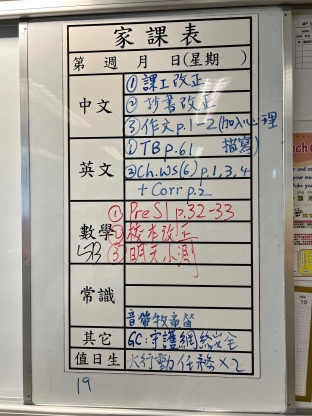 家課表
第 週 月 日(星期 )
中文
①課工改正
②抄書改正
③作文p.1-2(加入心理描寫)
英文
①TBp.61
②Ch.WS(6)p.1,3,4
+Corrp.2
數學
5B
①PreS1p.32-33
②校本改正
③明天小測
常識
音帶牧童笛
其它
GC:守護網絡安全
值日生
大行動任務×2
19